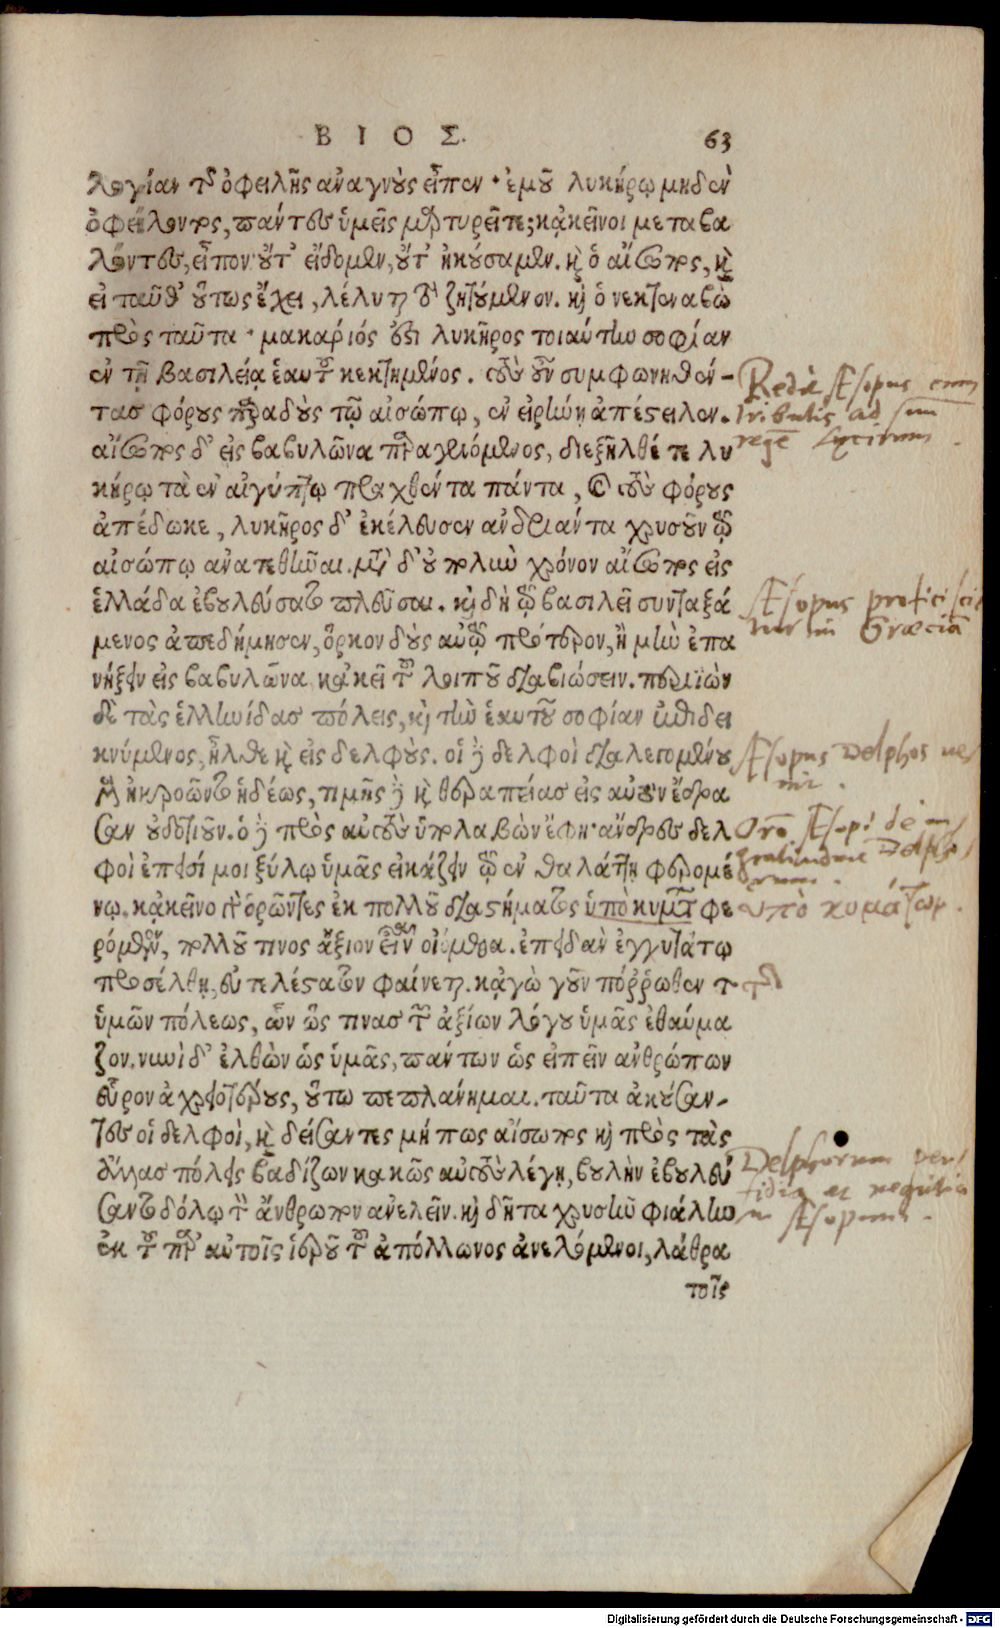 ΒΙΟΣ.
63
λογίαν τῆς ὀφειλῆς ἀναγνοὺς εἶπεν· ἐμοῦ λυκήρῳ μηδὲν
ὀφείλοντος, πάντες ὑμεῖς μαρτυρεῖτε; κἀκεῖνοι μεταβα
λόντες, εἶπον· οὔτ' εἴδομεν, οὔτ' ἠκούσαμεν. καὶ ὁ αἴσωπος, καὶ
εἰ ταῦθ' οὕτως ἔχει, λέλυται τὸ ζητούμενον. καὶ ὁ νεκτεναβὼ
πρὸς ταῦτα· μακάριός ἐστι λυκῆρος τοιαύτην σοφίαν
ἐν τῇ βασιλείᾳ ἑαυτοῦ κεκτημένος. τοὺς οὖν συμφωνηθέν-
τας φόρους παραδοὺς τῷ αἰσώπῳ, ἐν εἰρήνῃ ἀπέστειλεν.
αἴσωπος δ' εἰς βαβυλῶνα παραγενόμενος, διεξῆλθέ τε λυ
κήρῳ τὰ ἐν αἰγύπτῳ πραχθέντα πάντα, καὶ τοὺς φόρους
ἀπέδωκε, λυκῆρος δ' ἐκέλευσεν ἀνδριάντα χρυσοῦν τῷ
αἰσώπῳ ἀνατεθῆναι. μετὰ δ' οὐ πολὺν χρόνον αἴσωπος εἰς
ἑλλάδα ἐβουλεύσατο πλεῦσαι. καὶ δὴ τῷ βασιλεῖ συνταξά
μενος ἀπεδήμησεν, ὅρκον δοὺς αὐτῷ πρότερον, ἦ μὴν ἐπα
νήξειν εἰς βαβυλῶνα, κἀκεῖ τοῦ λοιποῦ διαβιώσειν. περιϊὼν
δὲ τὰς ἑλληνίδας πόλεις, καὶ τὴν ἑαυτοῦ σοφίαν ἐπιδει
κνύμενος, ἦλθε καὶ εἰς δελφούς. οἱ δὲ δελφοὶ διαλεγομένου
μὲν ἠκροῶντο ἡδέως, τιμῆς δὲ καὶ θεραπείας εἰς αὐτὸν ἔδρα
σαν οὐδοτιοῦν. ὁ δὲ πρὸς αὐτοὺς ὑπολαβὼν ἔφη· ἄνδρες δελ
φοὶ ἔπεισί μοι ξύλῳ ὑμᾶς εἰκάζειν τῷ ἐν θαλάττῃ φερομέ
νῳ. κἀκεῖνο γὰρ ὁρῶντες ἐκ πολλοῦ διαστήματος ὑπὸ κυμάτων φε
ρόμενον, πολλοῦ τινος ἄξιον εἶναι οἰόμεθα. ἐπειδὰν ἐγγυτάτω
προσέλθῃ, εὐτελέστατον φαίνεται. κἀγὼ γοῦν πόῤῥωθεν τῆς
ὑμῶν πόλεως, ὢν ὥς τινας τῶν ἀξίων λόγου ὑμᾶς ἐθαύμα
ζον. νυνὶ δ' ἐλθὼν ὡς ὑμᾶς, πάντων ὡς εἰπεῖν ἀνθρώπων
εὗρον ἀχρειοτέρους, οὕτω πεπλάνημαι. ταῦτα ἀκούσαν-
τες οἱ δελφοὶ, καὶ δείσαντες μή πως αἴσωπος καὶ πρὸς τὰς
ἄλλας πόλεις βαδίζων κακῶς αὐτοὺς λέγῃ, βουλὴν ἐβουλεύ
σαντο δόλῳ τὸν ἄνθρωπον ἀνελεῖν. καὶ δῆτα χρυσῆν φιάλην
ἐκ τοῦ παρ' αὐτοῖς ἱεροῦ τοῦ ἀπόλλωνος ἀνελόμενοι, λάθρα
τοῖς
Redit Æsopus cum
tributis ad suum
regē Lycerum.
Æsopus proficisci
tur in Græciā
Æsopus Delphos ve
nit.
Æsopi de in
gratitudine Delpho
rum.
ὑπὸ κυμάτων.
τῆς
Delphorum per
fidia et nequitia
in Æsopum.
Digitalisierung gefördert durch die Deutsche Forschungsgemeinschaft - DFG